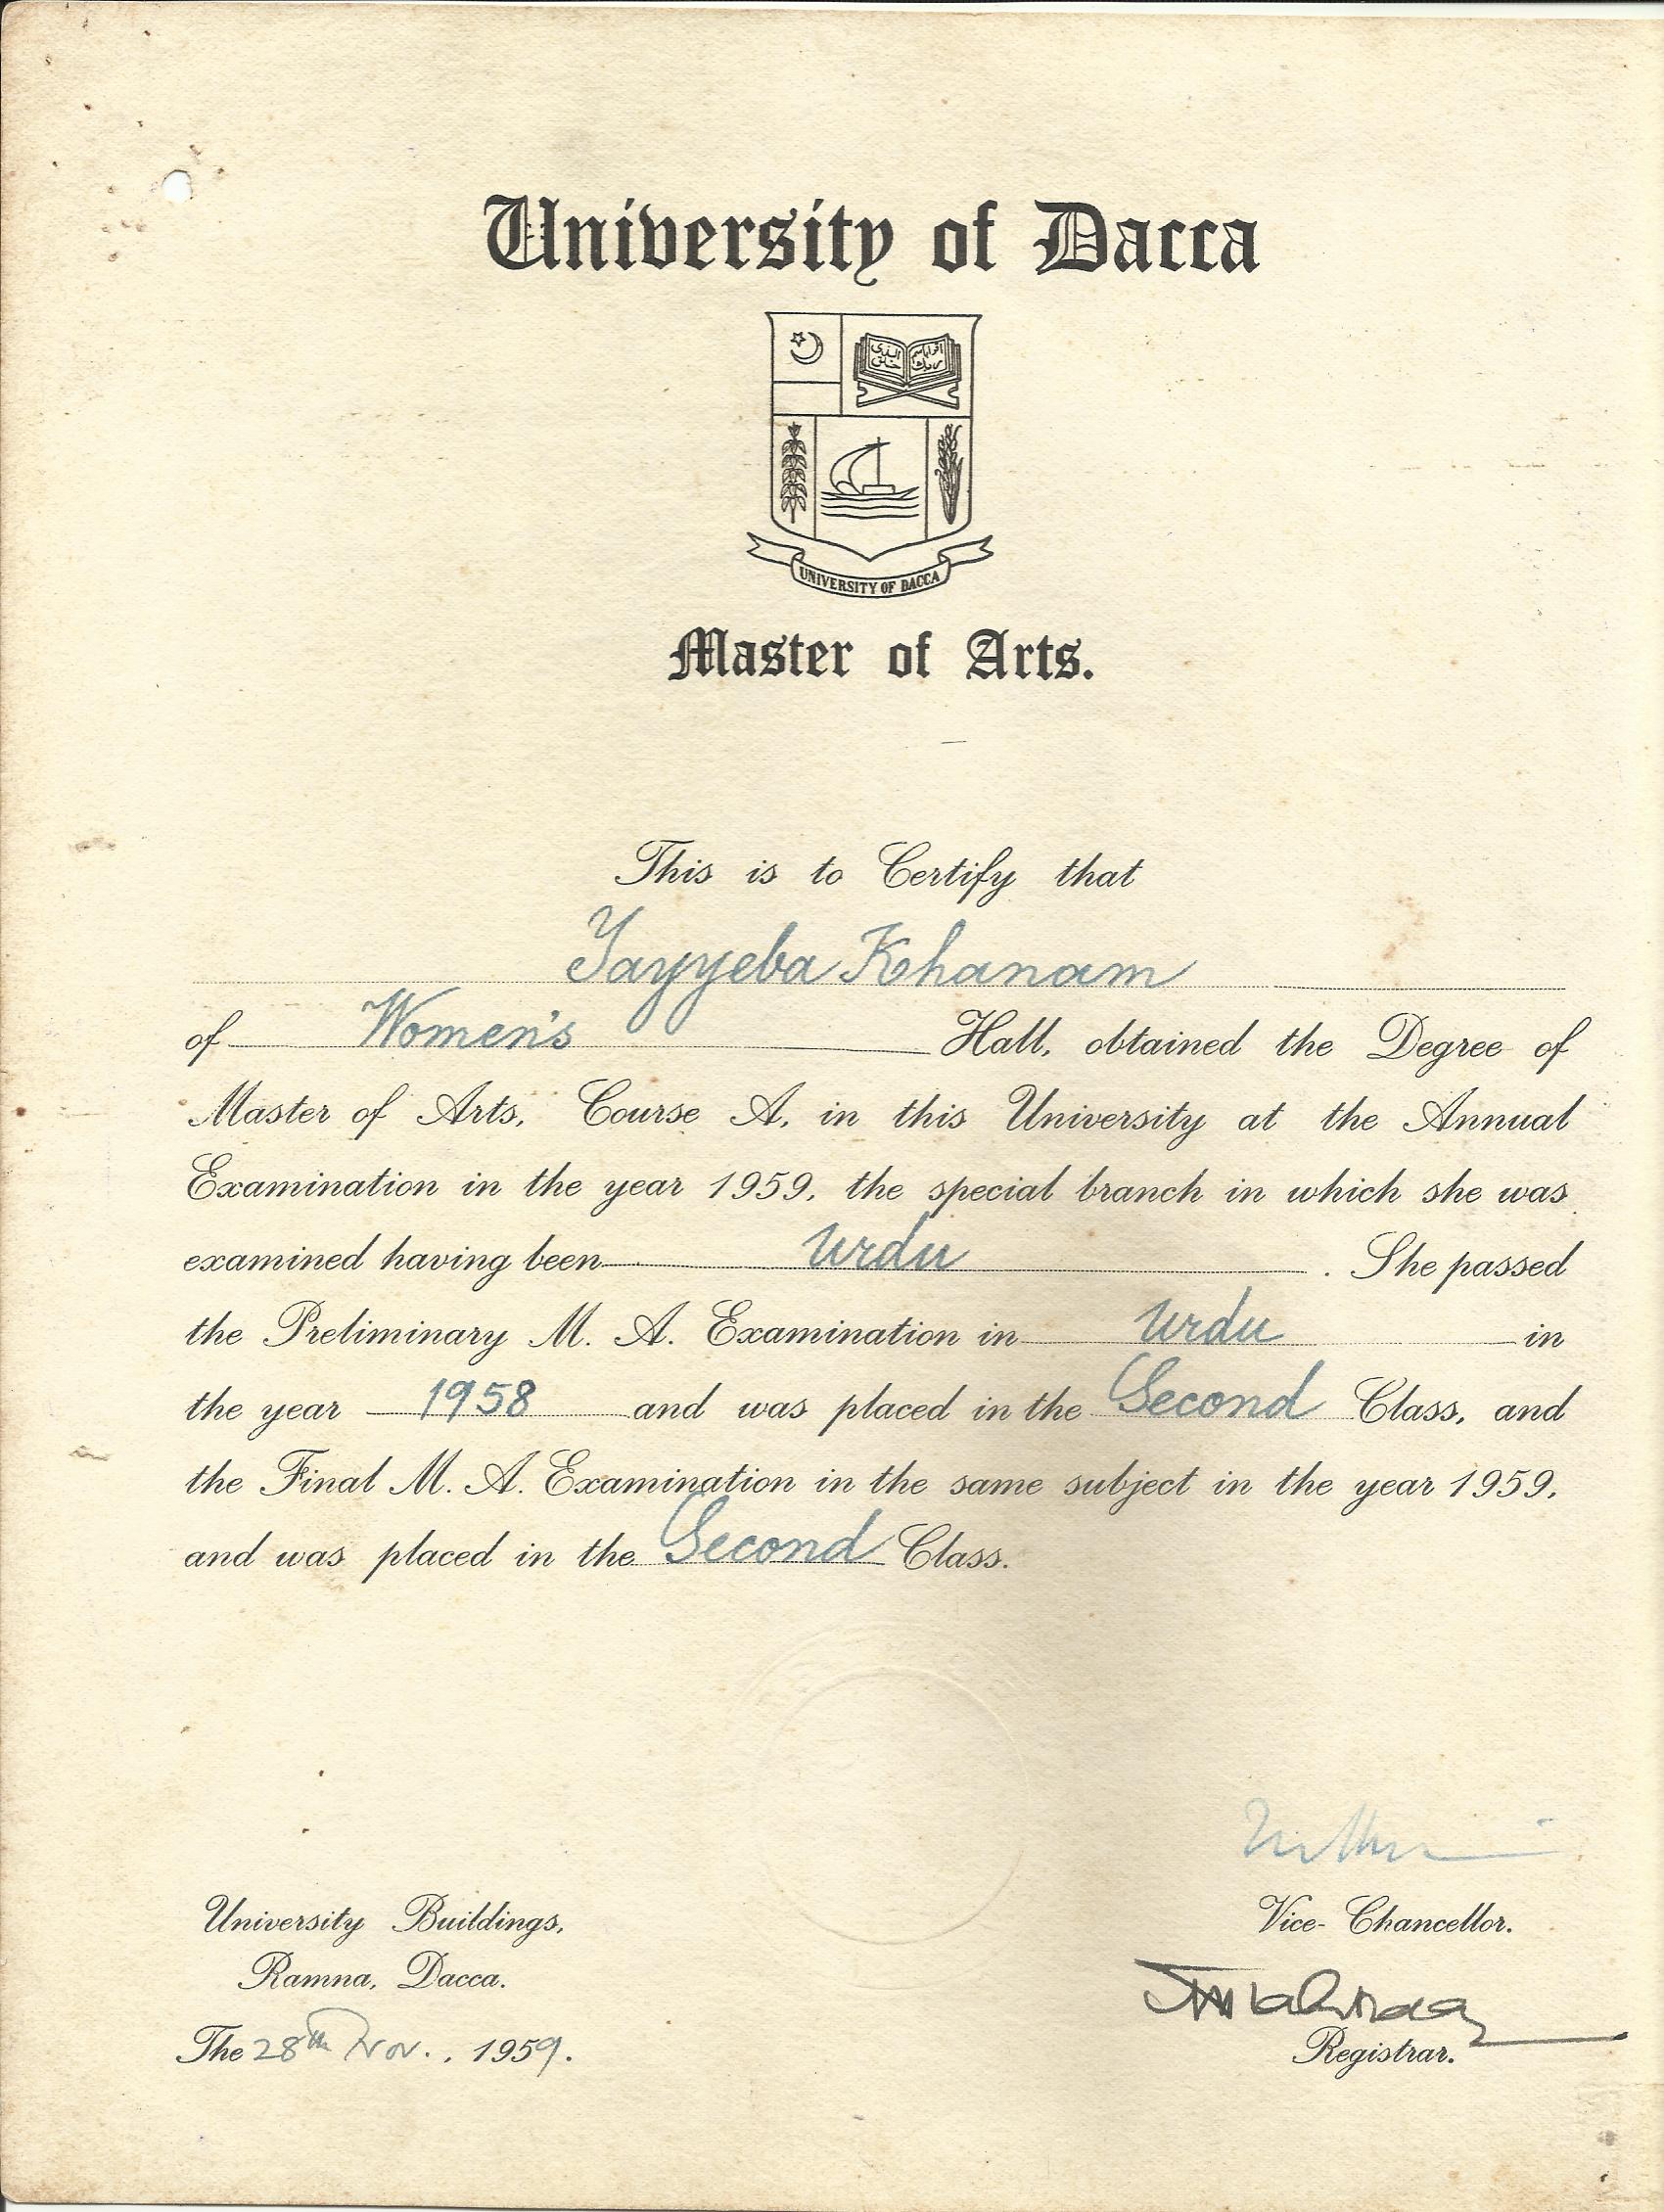 University of Dacca
الذى خلق
اقرا باسم ربك
UNIVERSITY OF DACCA
Master of Arts.
This is to Certify that
Tayyeba Khanam
of Women's Hall, obtained the Degree of
Master of Arts, Course A, in this University at the Annual
Examination in the year 1959, the special branch in which she was
examined having been Urdu . She passed
the Preliminary M. A. Examination in Urdu in
the year 1958 and was placed in the Second Class, and
the Final M. A. Examination in the same subject in the year 1959,
and was placed in the Second Class.
Vice-Chancellor.
University Buildings,
Ramna, Dacca.
The 28th Nov., 1959.
Registrar.